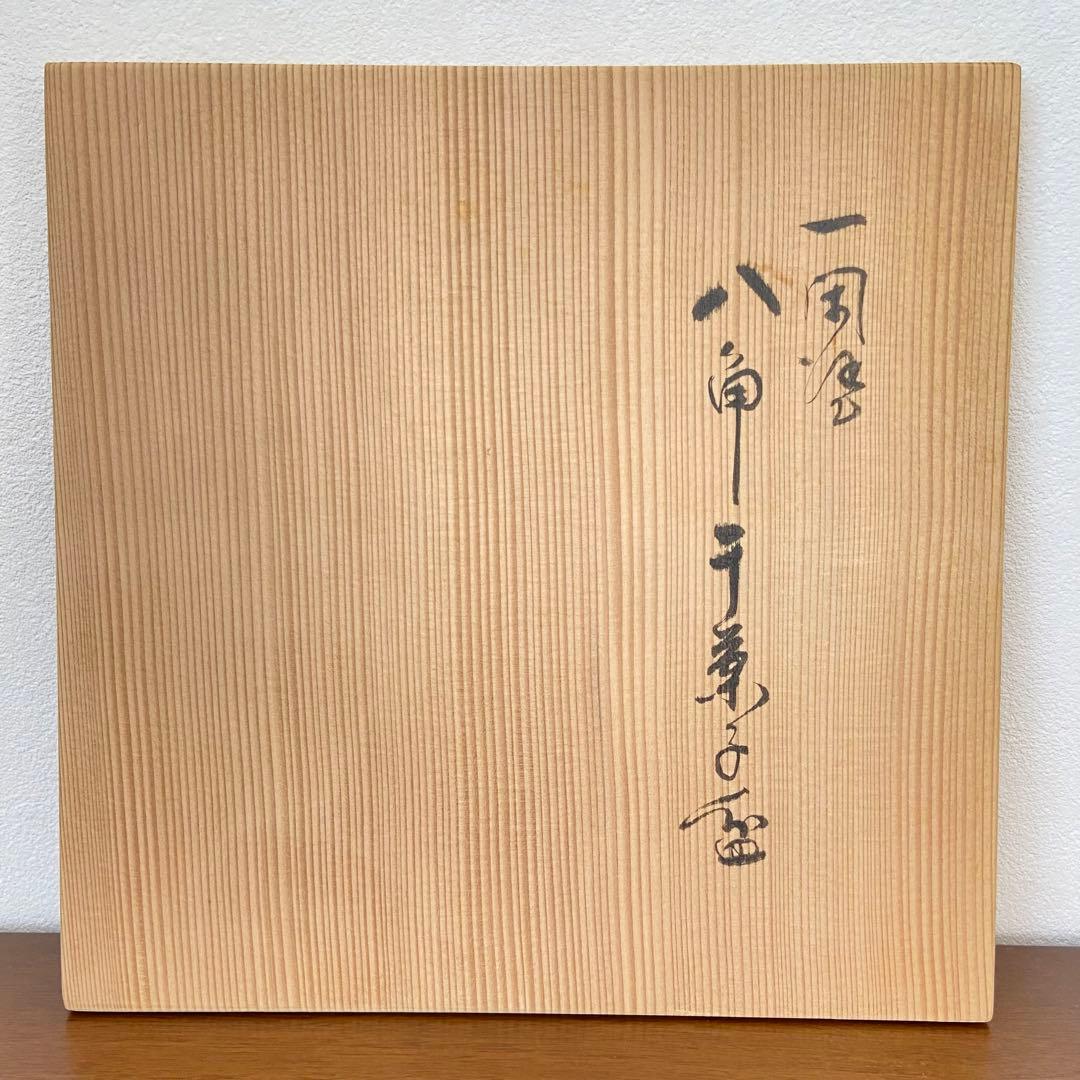 一閑塗
八角干菓子盆